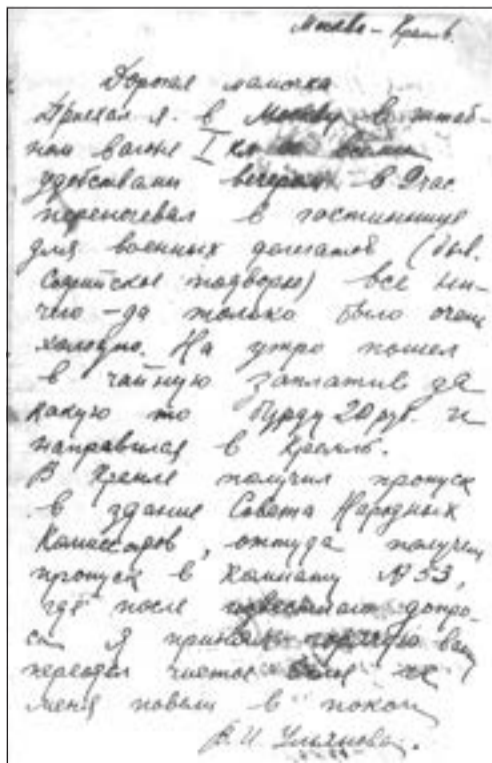 Москва – Кремль.
Дорогая мамочка
Приехал я в Москву в штаб-
ном вагоне I кл со всеми
удобствами вечером в 9 час
переночевал в гостиннице
для военных делегатов (быв.
Софийское подворье) всё ни-
чего – да только было очень
холодно. На утро пошел
в чайную заплатив за
какую то бурду 20 руб. и
направился в Кремль.
В Кремле получил пропуск
в здание Совета Народных
Комиссаров, оттуда получил
пропуск в комнату № 53,
где после допро-
са я принял горячую ванну
переодел чистое белье и
меня повели в покои
В. И. Ульянова.